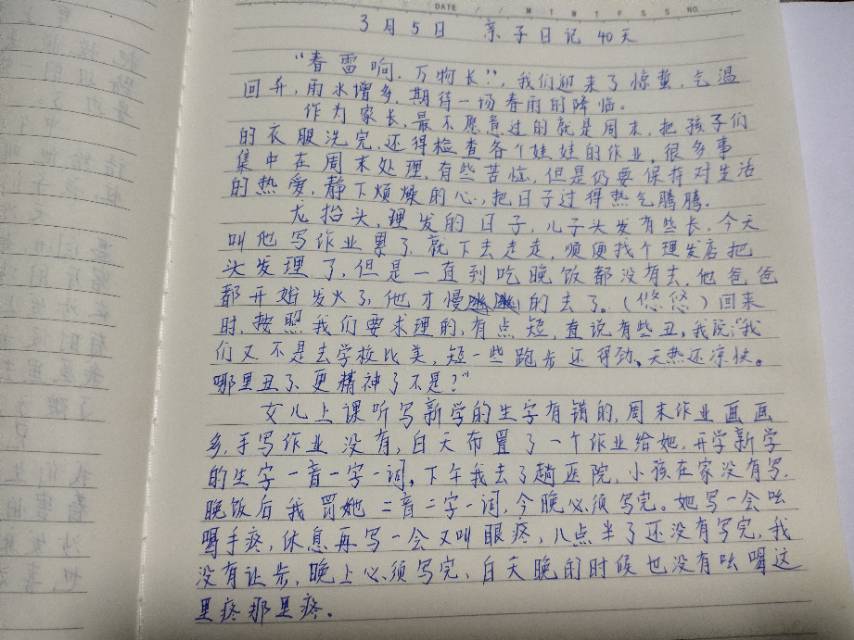 DATE / / M T W T F S S NO.
3月5日 亲子日记 40天
“春雷响,万物长!”,我们迎来了惊蛰,气温
回升,雨水增多,期待一场春雨的降临。
作为家长,最不愿意过的就是周末,把孩子们
的衣服洗完,还得检查各个娃娃的作业,很多事
集中在周末处理,有些苦恼,但是仍要保持对生活
的热爱,静下烦燥的心,把日子过得热气腾腾.
龙抬头,理发的日子,儿子头发有些长,今天
叫他写作业累了,就下去走走,顺便找个理发店把
头发理了,但是一直到吃晚饭都没有去,他爸爸
都开始发火了,他才慢的去了。(悠悠)回来
时,按照我们要求理的,有点短,直说有些丑,我说:“我
们又不是去学校比美,短一些跑步还得劲、天热还凉快。
哪里丑了、更精神了不是?”
女儿上课听写新学的生字有错的,周末作业画画
多,手写作业没有,白天布置了一个作业给她,开学新学
的生字一音一字一词,下午我去了趟医院,小孩在家没有写.
晚饭后我罚她二音二字一词,今晚必须写完。她写一会吆
喝手疼,休息再写一会又叫眼疼,八点半了还没有写完,我
没有让步,晚上必须写完、白天晚的时候也没有吆喝这
里疼那里疼.